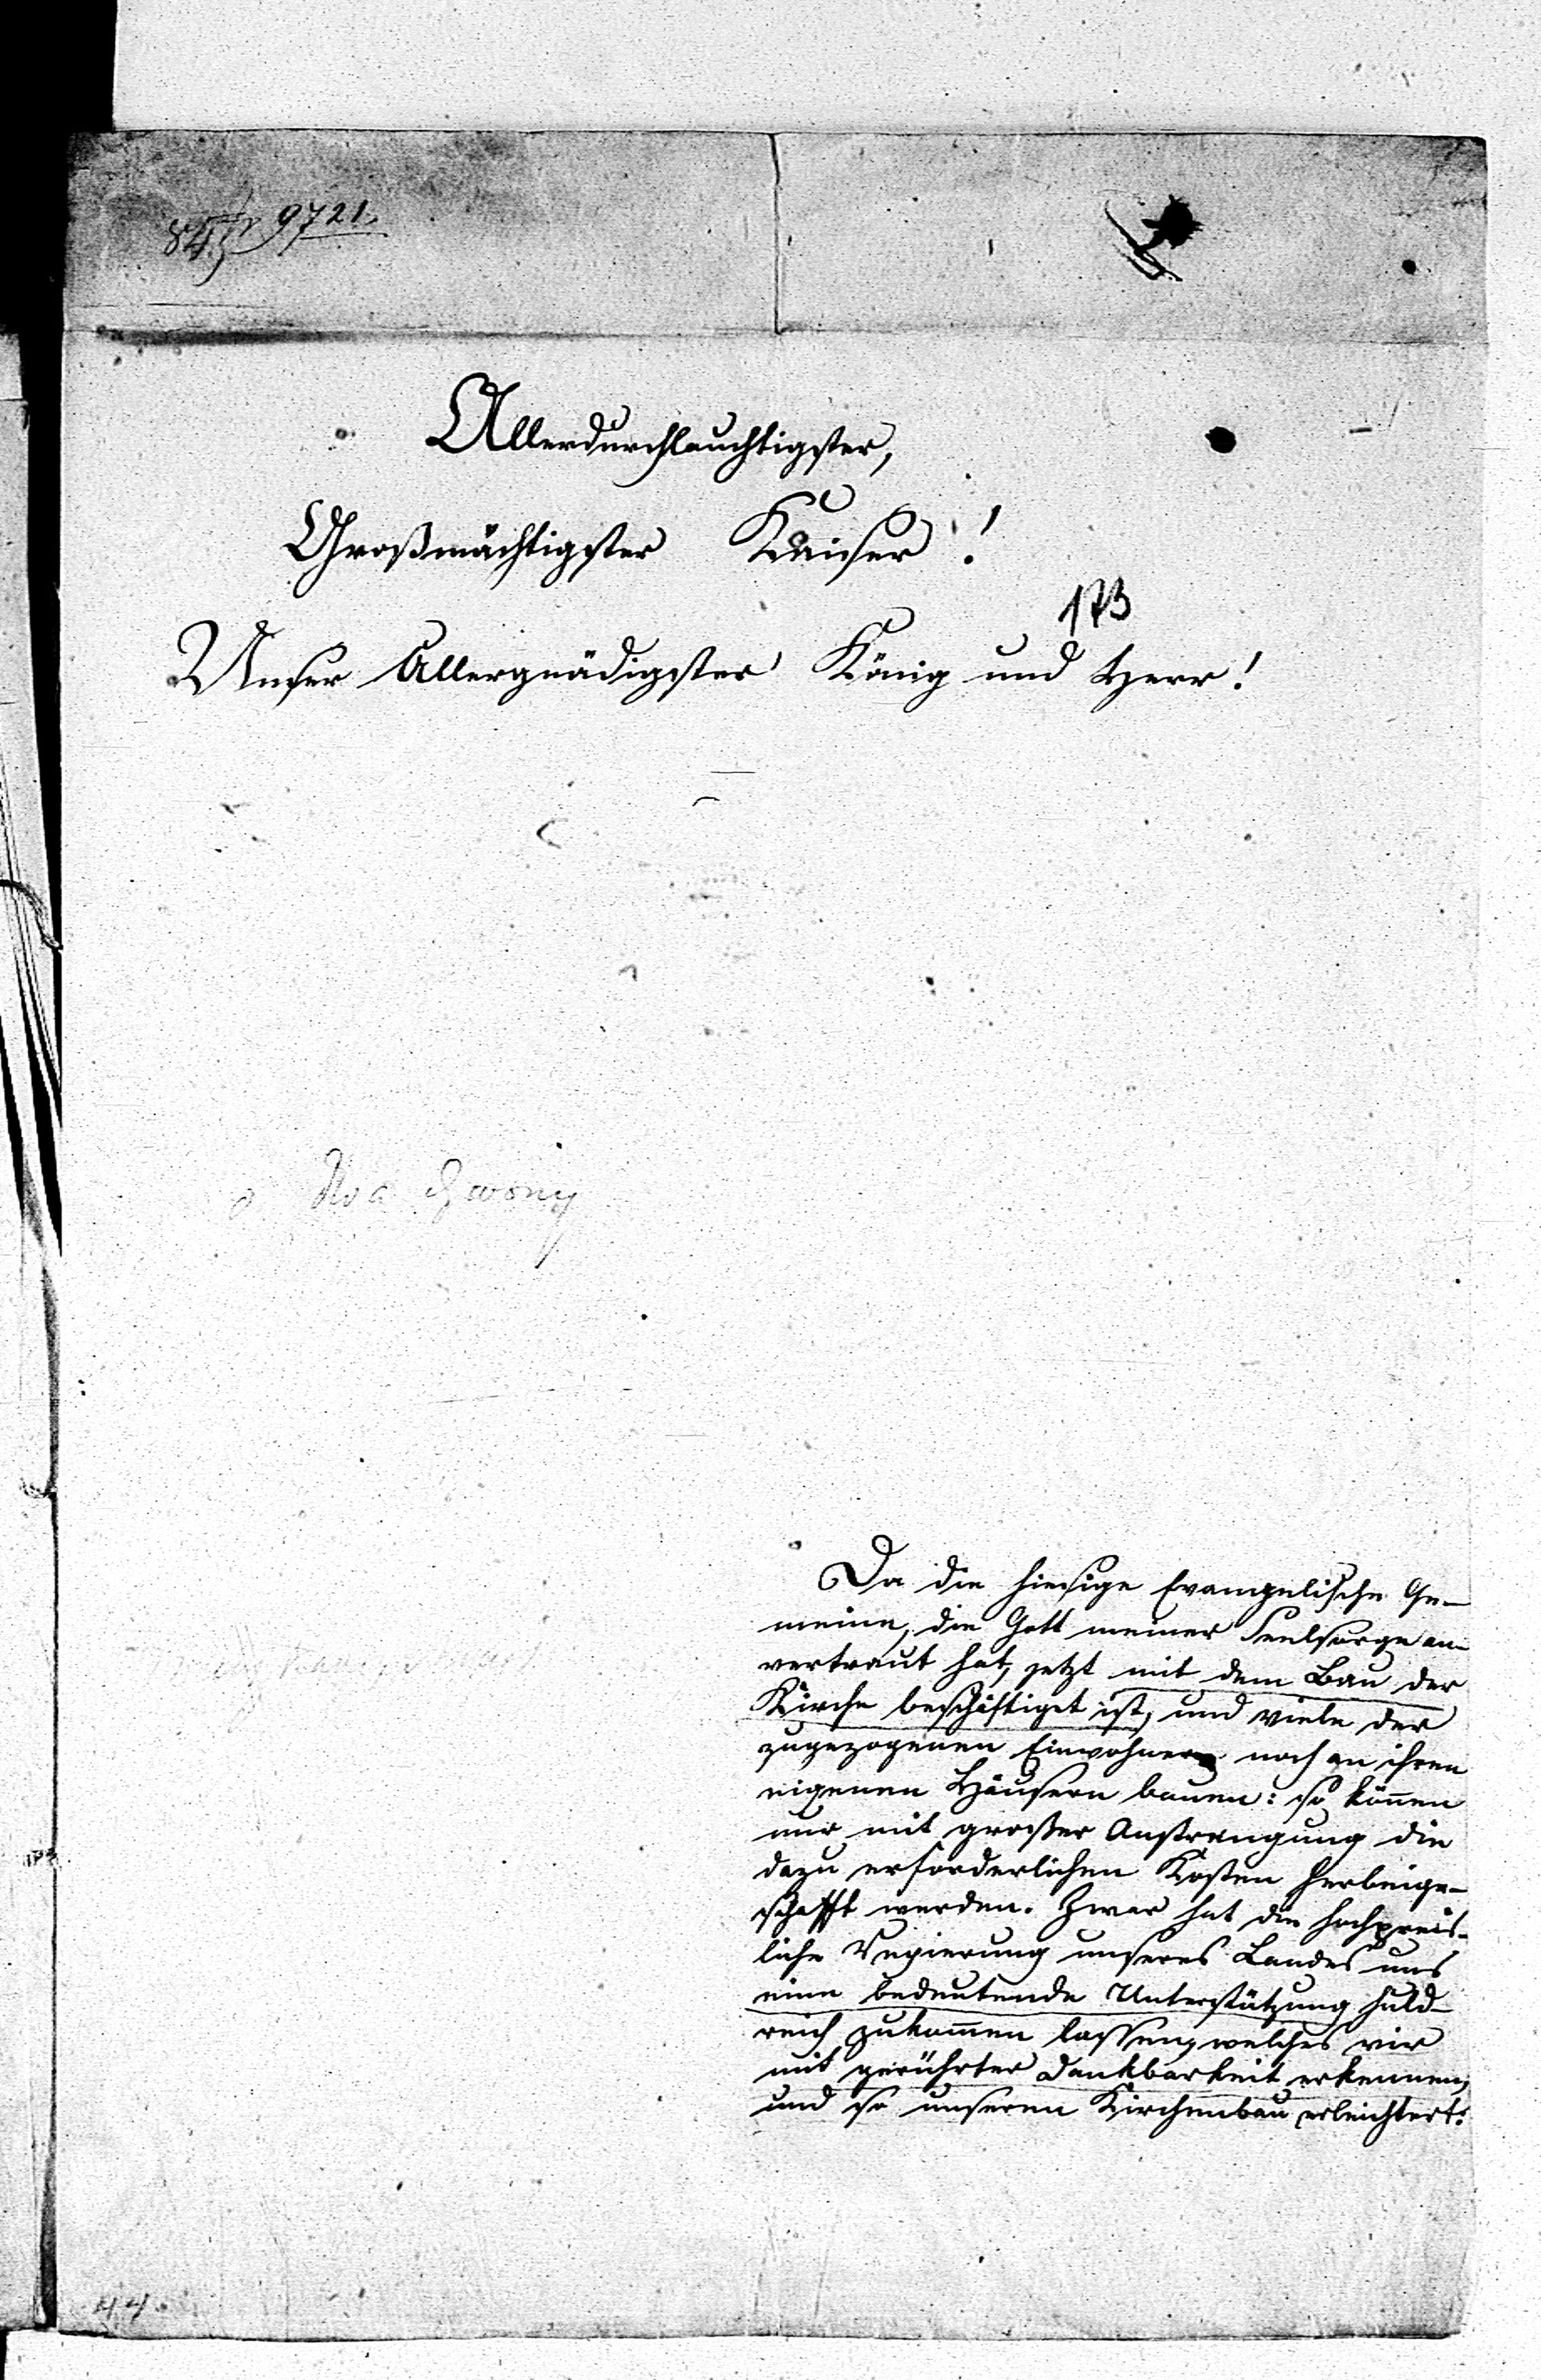 9721.
Allerdurchlauchtigster,
Großmächtigster Kaiser!
173
Unser Allergnädigster König und Herr!
Da die hiesige Evangelische Ge-
meine, die Gott meiner Seelsorge an-
vertraut hat, jetzt mit dem Bau der
Kirche beschäftiget ist, und viele der
zugezogenen Einwohner noch an ihren
eigenen Häusern bauen: so können
nur mit großer Anstrengung die
dazu erforderlichen Kosten herbeige-
schafft werden. Zwar hat die hochpreis-
liche Regierung unseres Landes uns
eine bedeutende Unterstützung huld-
reich zukommen lassen, welches wir
mit gerührter Dankbarkeit erkennen,
und so unseren Kirchenbau erleichtert:
44.